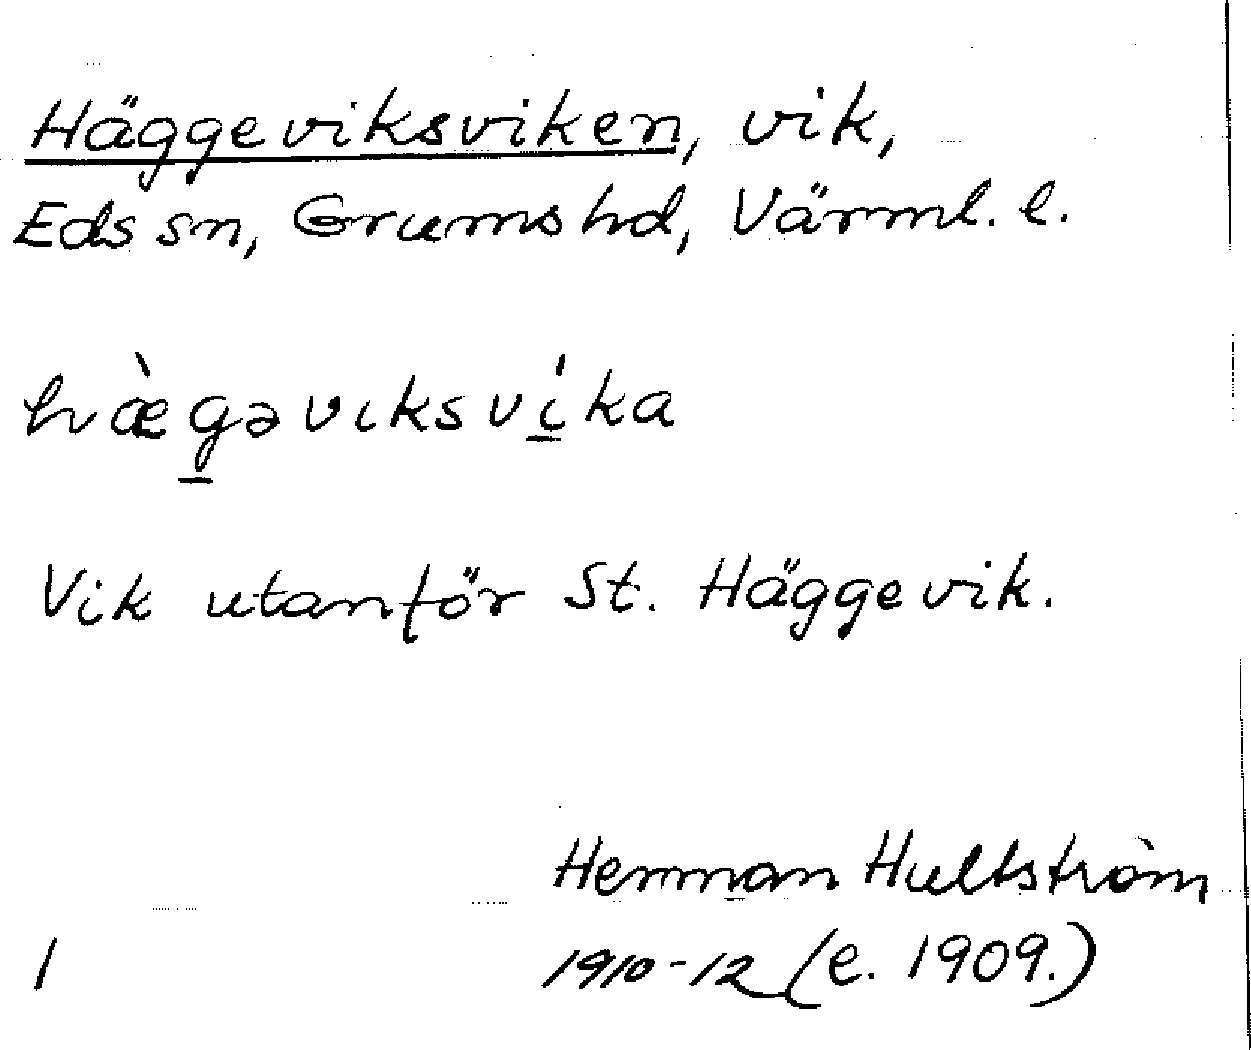 Häggeviksviken, vik,
Eds sn, Grums hd, Värml. l.
hæ̀g̲əvıksví̲ka
Vik utanför St. Häggevik.
Herman Hultström
1 1910-12 (e. 1909.)